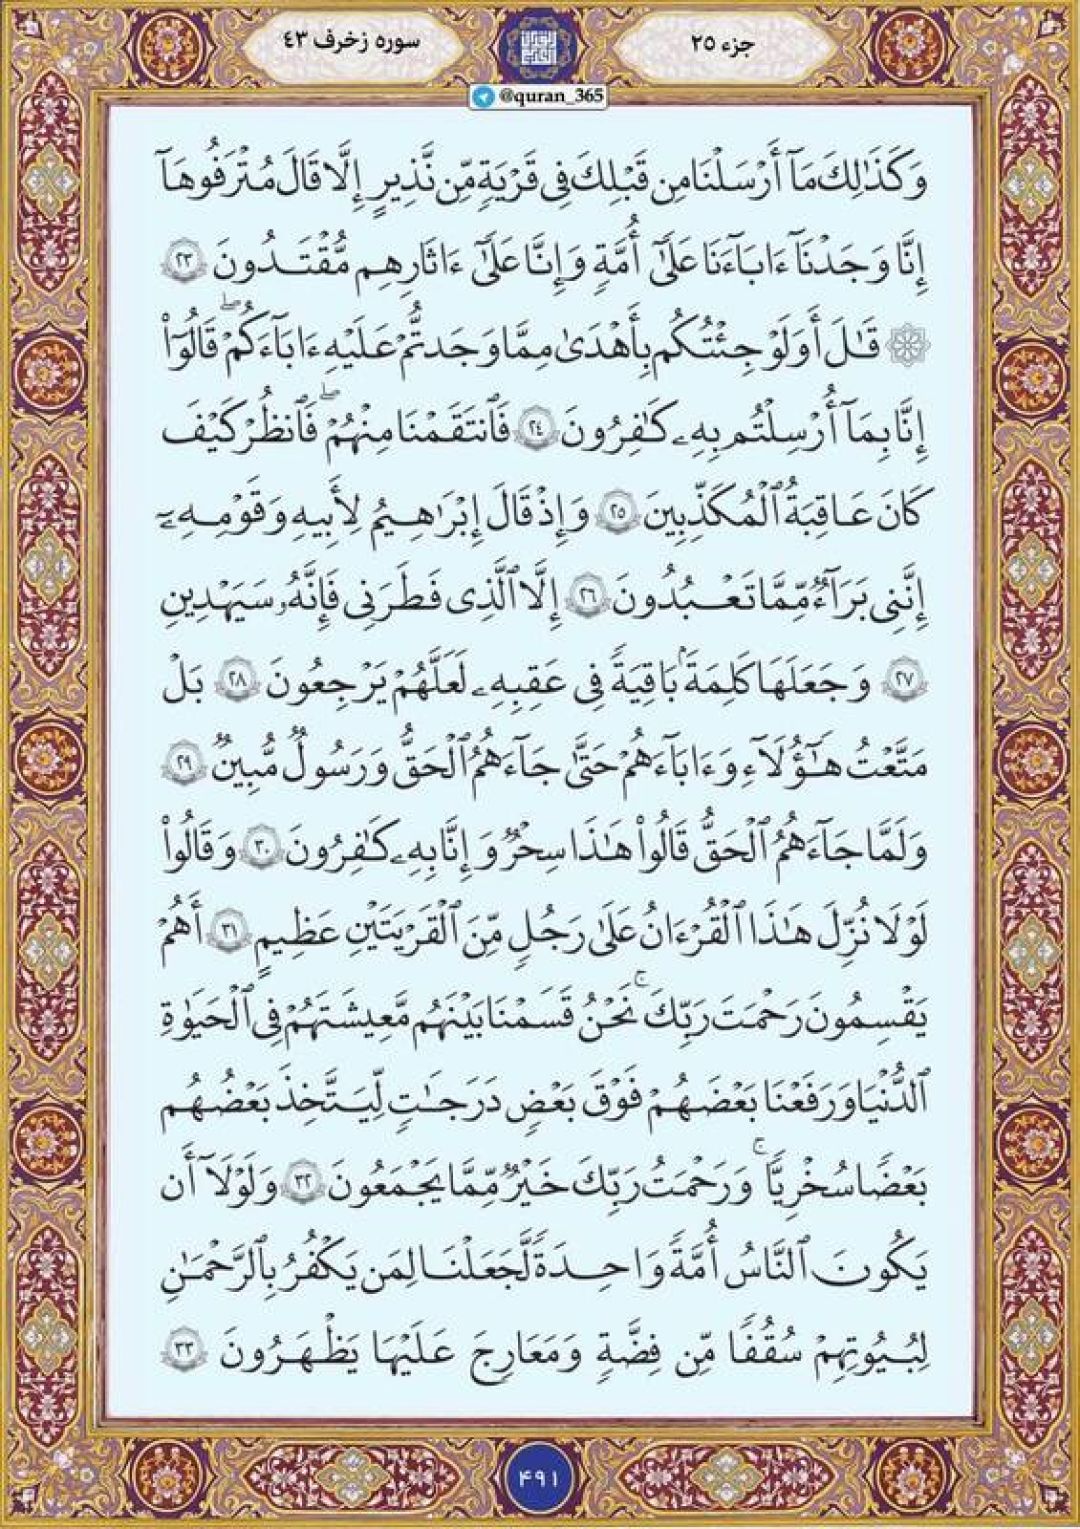 جزء ٢٥
سوره زخرف ٤٣
@quran_365
وَكَذَٰلِكَ مَآ أَرْسَلْنَا مِن قَبْلِكَ فِى قَرْيَةٍ مِّن نَّذِيرٍ إِلَّا قَالَ مُتْرَفُوهَآ
إِنَّا وَجَدْنَآ ءَابَآءَنَا عَلَىٰٓ أُمَّةٍ وَإِنَّا عَلَىٰٓ ءَاثَارِهِم مُّقْتَدُونَ ٢٣
۞ قَٰلَ أَوَلَوْ جِئْتُكُم بِأَهْدَىٰ مِمَّا وَجَدتُّمْ عَلَيْهِ ءَابَآءَكُمْ ۖ قَالُوٓا۟
إِنَّا بِمَآ أُرْسِلْتُم بِهِۦ كَٰفِرُونَ ٢٤ فَٱنتَقَمْنَا مِنْهُمْ ۖ فَٱنظُرْ كَيْفَ
كَانَ عَاقِبَةُ ٱلْمُكَذِّبِينَ ٢٥ وَإِذْ قَالَ إِبْرَٰهِيمُ لِأَبِيهِ وَقَوْمِهِۦٓ
إِنَّنِى بَرَآءٌ مِّمَّا تَعْبُدُونَ ٢٦ إِلَّا ٱلَّذِى فَطَرَنِى فَإِنَّهُۥ سَيَهْدِينِ
٢٧ وَجَعَلَهَا كَلِمَةًۢ بَاقِيَةً فِى عَقِبِهِۦ لَعَلَّهُمْ يَرْجِعُونَ ٢٨ بَلْ
مَتَّعْتُ هَٰٓؤُلَآءِ وَءَابَآءَهُمْ حَتَّىٰ جَآءَهُمُ ٱلْحَقُّ وَرَسُولٌ مُّبِينٌ ٢٩
وَلَمَّا جَآءَهُمُ ٱلْحَقُّ قَالُوا۟ هَٰذَا سِحْرٌ وَإِنَّا بِهِۦ كَٰفِرُونَ ٣٠ وَقَالُوا۟
لَوْلَا نُزِّلَ هَٰذَا ٱلْقُرْءَانُ عَلَىٰ رَجُلٍ مِّنَ ٱلْقَرْيَتَيْنِ عَظِيمٍ ٣١ أَهُمْ
يَقْسِمُونَ رَحْمَتَ رَبِّكَ ۚ نَحْنُ قَسَمْنَا بَيْنَهُم مَّعِيشَتَهُمْ فِى ٱلْحَيَوٰةِ
ٱلدُّنْيَا وَرَفَعْنَا بَعْضَهُمْ فَوْقَ بَعْضٍ دَرَجَٰتٍ لِّيَتَّخِذَ بَعْضُهُم
بَعْضًا سُخْرِيًّا ۗ وَرَحْمَتُ رَبِّكَ خَيْرٌ مِّمَّا يَجْمَعُونَ ٣٢ وَلَوْلَآ أَن
يَكُونَ ٱلنَّاسُ أُمَّةً وَٰحِدَةً لَّجَعَلْنَا لِمَن يَكْفُرُ بِٱلرَّحْمَٰنِ
لِبُيُوتِهِمْ سُقُفًا مِّن فِضَّةٍ وَمَعَارِجَ عَلَيْهَا يَظْهَرُونَ ٣٣
۴۹۱